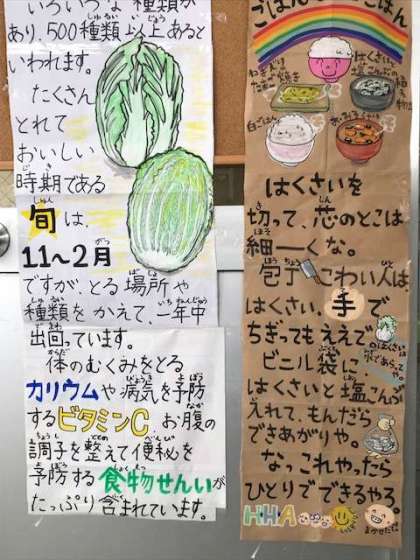 いろいろな種類が
あり、500種類以上あると
いわれます。
たくさん
とれて
おいしい
時期である
旬は、
11〜2月
ですが、とる場所や
種類をかえて、一年中
出回っています。
体のむくみをとる
カリウムや病気を予防
するビタミンC、お腹の
調子を整えて便秘を
予防する食物せんいが
たっぷり含まれています。
ごはん
はくさいと
塩こんぶの
白ごはん
はくさいを
切って、芯のとこは
細ーくな。
包丁こわい人は
はくさい、手で
ちぎってもええで
ビニル袋に、
はくさいと塩こんぶ
えれて、もんだら
できあがりや。
なっこれやったら
ひとりでできるやろ。
HHA